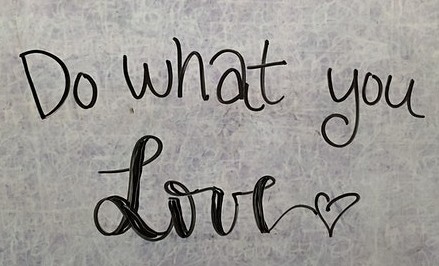 Do what you
Love